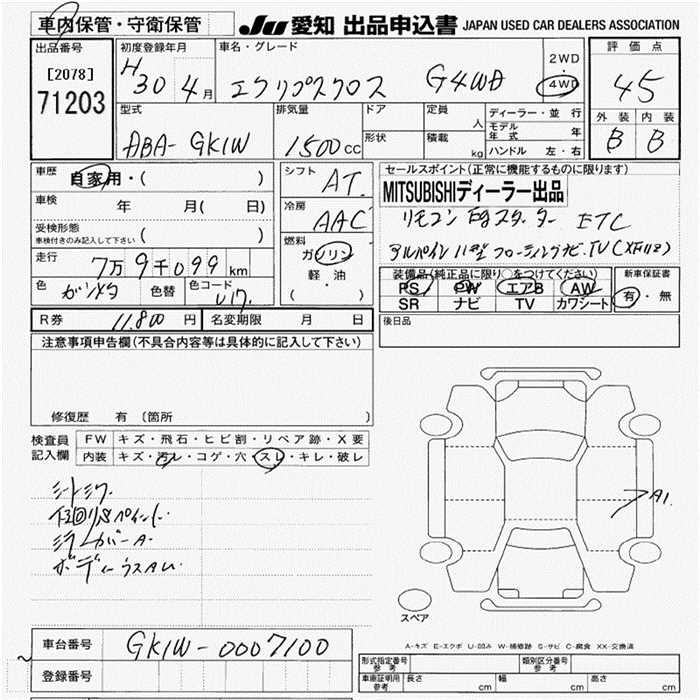 車内保管・守衛保管
JU 愛知 出品申込書 JAPAN USED CAR DEALERS ASSOCIATION
出品番号
[2078]
71203
初度登録年月
H30 4月
車名・グレード
エクリプスクロス G4WD
2WD
・
4WD
評価点
4.5
外装 内装
B B
型式
ABA-GK1W
排気量
1500cc
ドア
形状
定員 人
積載 kg
ディーラー・並行
モデル年式 年
ハンドル 左・右
車歴 自家用・( )
車検 年 月( 日)
受検形態
車検付きのみ記入して下さい ( )
走行 7万9千099km
色 ガンメタ 色替 色コード U17
シフト AT
冷房 AAC
燃料
ガソリン
軽油
( ・ )
セールスポイント(正常に機能するものに限ります)
MITSUBISHIディーラー出品
リモコンEgスターター ETC
アルパイン11型フローティングナビ.TV(XF11)
装備品(純正品に限り○をつけてください)
PS PW エアB AW
SR ナビ TV カワシート
新車保証書
有・無
R券 11.800円 名変期限 月 日
後日品
注意事項申告欄(不具合内容等は具体的に記入して下さい)
修復歴 有 〔箇所 〕
検査員
記入欄
FW キズ・飛石・ヒビ割・リペア跡・X要
内装 キズ・汚レ・コゲ・穴・スレ・キレ・破レ
シートシワ
ボディーウスAU
A1
スペア
A-キズ E-エクボ U-凹み W-補修跡 S-サビ C-腐食 XX-交換済
車台番号 GK1W-0007100
登録番号
形式指定番号 参考
類別区分番号 参考
車庫証明用 参考 長さ cm 幅 cm 高さ cm